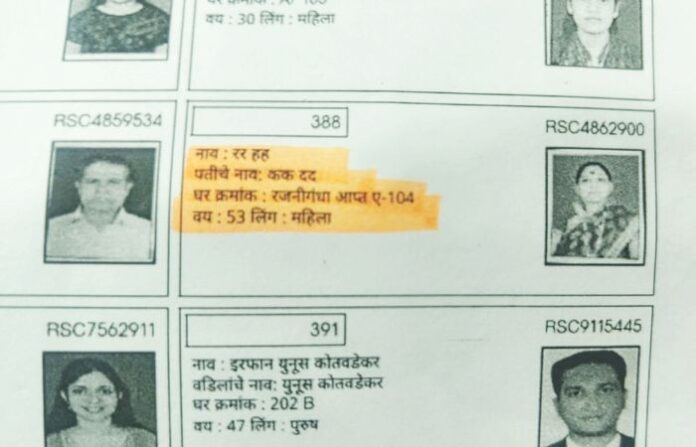 वय : 30 लिंग : महिला
RSC4859534
388
RSC4862900
नाव : रर हह
पतीचे नाव: कक दद
घर क्रमांक : रजनीगंधा आप्त ए-104
वय : 53 लिंग : महिला
RSC7562911
391
RSC9115445
नाव : इरफान युनूस कोतवडेकर
वडिलांचे नाव: युनूस कोतवडेकर
घर क्रमांक : 202 B
वय : 47 लिंग : पुरुष